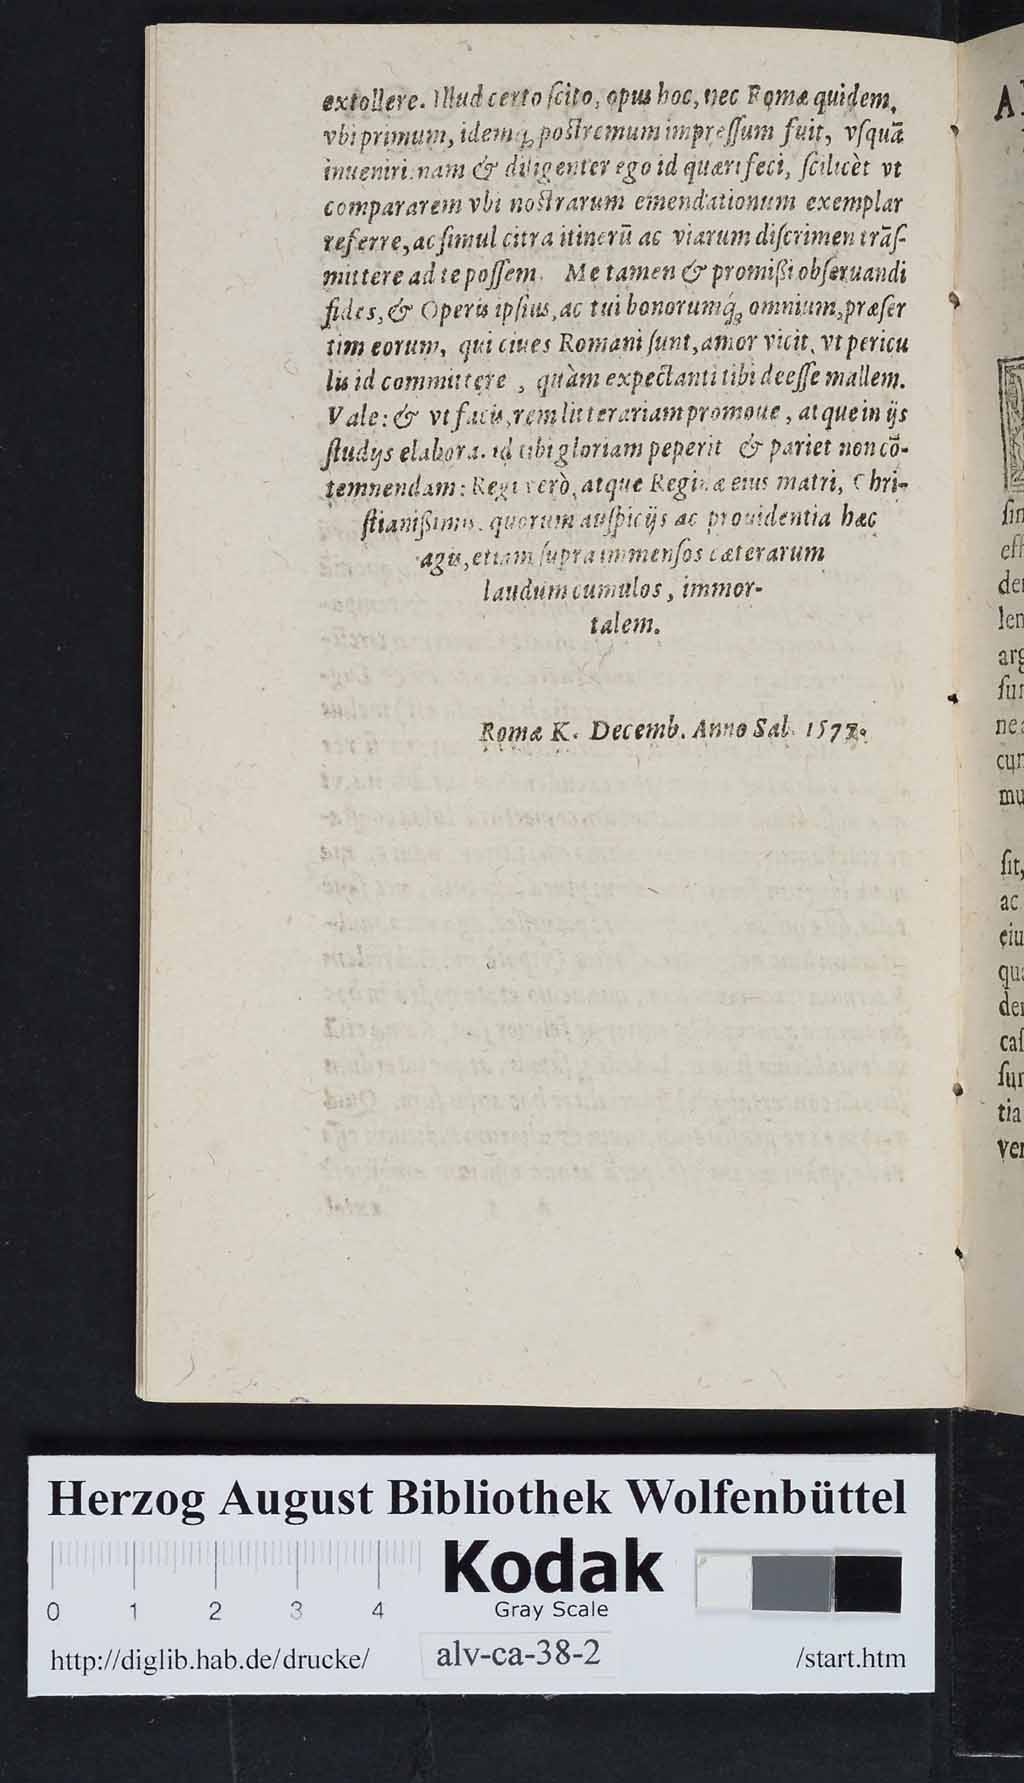 extollere. Illud certo ſcito, opus hoc, nec Romæ quidem,
vbi primum, idemq́; poſtremum impreſſum fuit, vſquā
inueniri: nam & diligenter ego id quæri feci, ſcilicèt vt
compararem vbi noſtrarum emendationum exemplar
referre, ac ſimul citra itinerū ac viarum diſcrimen trāſ-
mittere ad te poſſem. Me tamen & promißi obſeruandi
fides, & Operis ipſius, ac tui bonorumq́; omnium, præſer
tim eorum, qui ciues Romani ſunt, amor vicit, vt pericu
lis id committere, quàm expectanti tibi deeſſe mallem.
Vale: & vt facis, rem litterariam promoue, atque in ijs
ſtudijs elabora. id tibi gloriam peperit & pariet non cō-
temnendam: Regi verò, atque Reginæ eius matri, Chri-
ſtianißimis. quorum auſpicijs ac prouidentia hæc
agis, etiam ſupra immenſos cæterarum
laudum cumulos, immor-
talem.
Romæ K. Decemb. Anno Sal. 1573.
A
ſin
eſſ
der
len
arg
ſun
nea
cun
mu
ſit,
ac
eiu
qua
der
caſ
ſun
tia
ver
Herzog August Bibliothek Wolfenbüttel
Kodak
Gray Scale
0 1 2 3 4
http://diglib.hab.de/drucke/ alv-ca-38-2 /start.htm